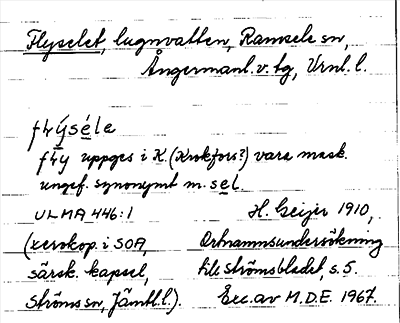 Flyselet, lugnvatten, Ramsele sn,
Ångermanl. v. tg, Vrnl. l.
flýséle
flý uppges i K. (Krokfors?) vara mask.
ungef. synonymt m. sel.
ULMA 446:1 H. Geijer 1910,
(xerokop. i SOA, Ortnamnsundersökning
särsk. kapsel, till Strömsbladet, s. 5.
Ströms sn, Jämtl. l.). Exc. av M.D.E. 1967.